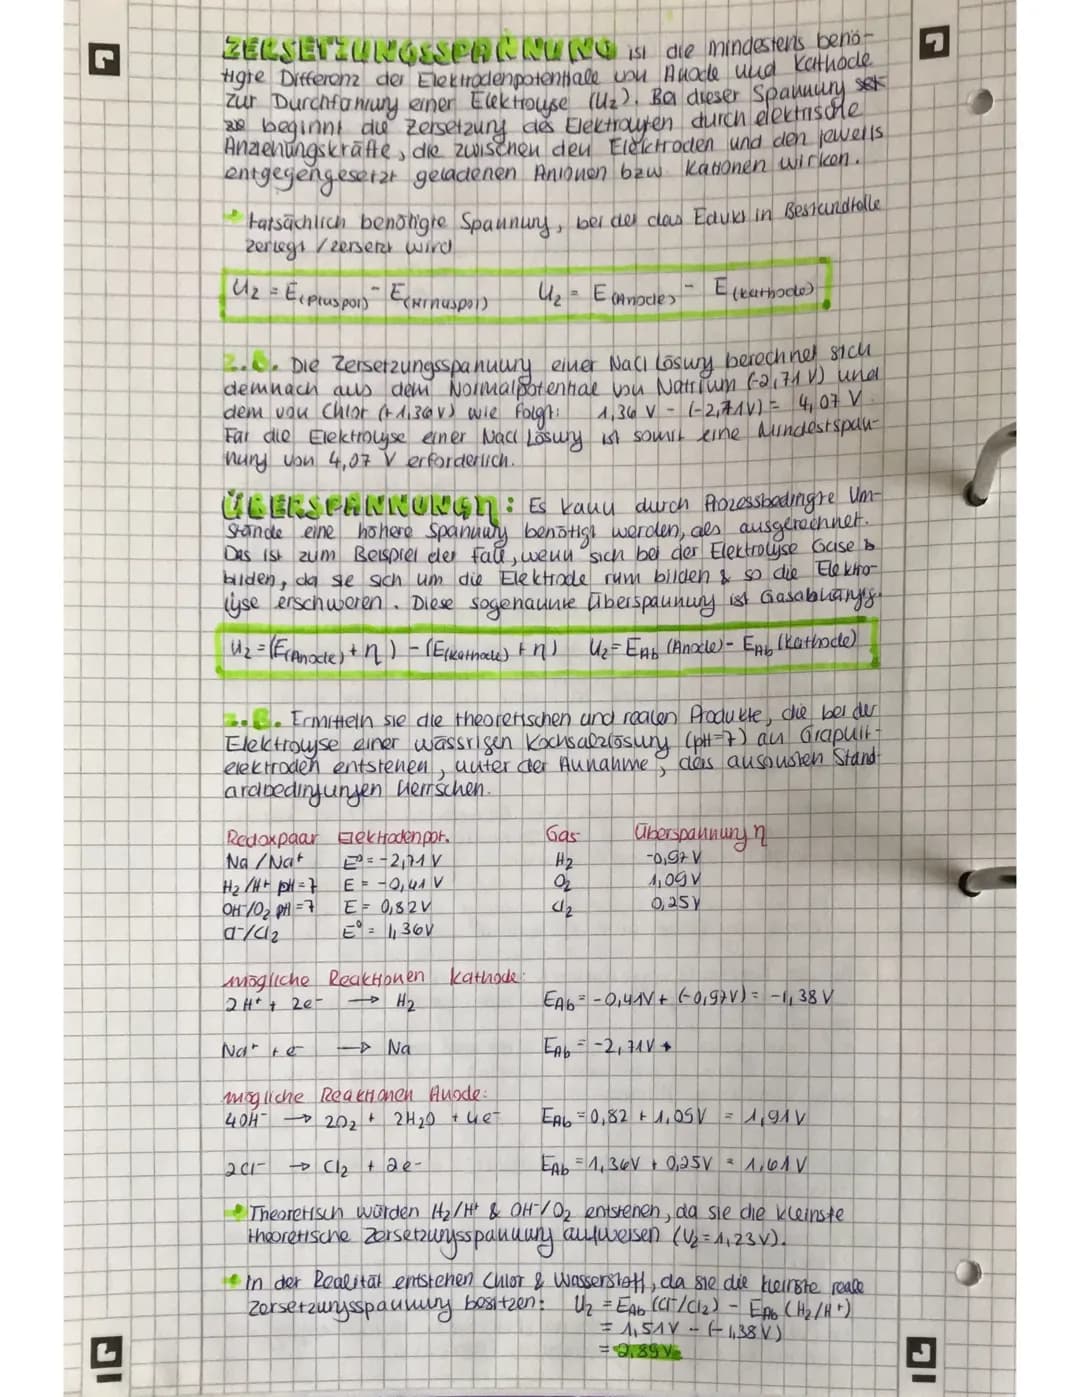 ZERSETZUNGSSPANNUNG ist die mindestens benö-
tigte Differenz der Elektrodenpotentiale von Anode und Kathode
zur Durchführung einer Elektrolyse (Uz). Bei dieser Spannung
beginnt die Zersetzung des Elektrolyten durch elektrische
Anziehungskräfte, die zwischen den Elektroden und den jeweils
entgegengesetzt geladenen Anionen bzw. Kationen wirken.
tatsächlich benötigte Spannung, bei der das Edukt in Bestandteile
zerlegt / zersetzt wird
Uz = E(Pluspol) - E(Minuspol) Uz = E(Anode) - E(Kathode)
z.B. Die Zersetzungsspannung einer NaCl Lösung berechnet sich
demnach aus dem Normalpotential von Natrium (-2,71 V) und
dem von Chlor (+1,36V) wie folgt: 1,36 V - (-2,71V) = 4,07 V.
Für die Elektrolyse einer NaCl Lösung ist somit eine Mindestspan-
nung von 4,07 V erforderlich.
ÜBERSPANNUNG η: Es kann durch Prozessbedingte Um-
stände eine höhere Spannung benötigt werden, als ausgerechnet.
Das ist zum Beispiel der Fall, wenn sich bei der Elektrolyse Gase
bilden, da sie sich um die Elektrode rum bilden & so die Elektro-
lyse erschweren. Diese sogenannte Überspannung ist Gasabhängig.
Uz = (E(Anode) + η) - (E(Kathode) + η) Uz = EAb (Anode) - EAb (Kathode)
z.B. Ermitteln sie die theoretischen und realen Produkte, die bei der
Elektrolyse einer wässrigen Kochsalzlösung (pH=7) an Graphit-
elektroden entstehen, unter der Annahme, das ansonsten Stand-
ardbedingungen Herrschen.
Redoxpaar Elektrodenpot. Gas Überspannung η
Na /Na+ E° = -2,71 V H2 -0,97 V
H2 /H+ pH=7 E = -0,41 V O2 1,09 V
OH-/O2 pH=7 E = 0,82V Cl2 0,25V
Cl-/Cl2 E° = 1,36V
mögliche Reaktionen Kathode:
2H+ + 2e- → H2 EAb = -0,41V + (-0,97V) = -1,38 V
Na+ + e- → Na EAb = -2,71V
mögliche Reaktionen Anode:
4OH- → 2O2 + 2H2O + 4e- EAb = 0,82 + 1,09V = 1,91V
2Cl- → Cl2 + 2e- EAb = 1,36V + 0,25V = 1,61V
Theoretisch würden H2/H+ & OH-/O2 entstehen, da sie die kleinste
theoretische Zersetzungsspannung aufweisen (Uz = 1,23V).
In der Realität entstehen Chlor & Wasserstoff, da sie die kleinste reale
Zersetzungsspannung besitzen: Uz = EAb (Cl-/Cl2) - EAb (H2/H+)
= 1,51V - (-1,38V)
= 2,89V